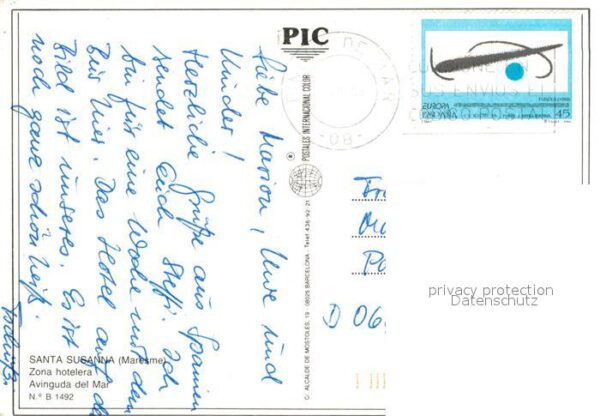 Liebe Marion, Uwe und
Kinder!
Herzliche Grüße aus Spanien
sendet Euch Steffi. Ich
bin für eine Woche mit dem
Bus hier. Das Hotel auf de
Bild ist unseres. Es ist
noch ganz schön heiß.
PIC
POSTALES INTERNACIONAL COLOR
C/. ALCALDE DE MOSTOLES, 19 - 08025 BARCELONA - Telef. 436 92 21
DE MAR
-08-
SUS ENVIOS
POSTAL
EUROPA
ESPAÑA
45
D 06
privacy protection
Datenschutz
SANTA SUSANNA (Maresme)
Zona hotelera
Avinguda del Mar
N.º B 1492